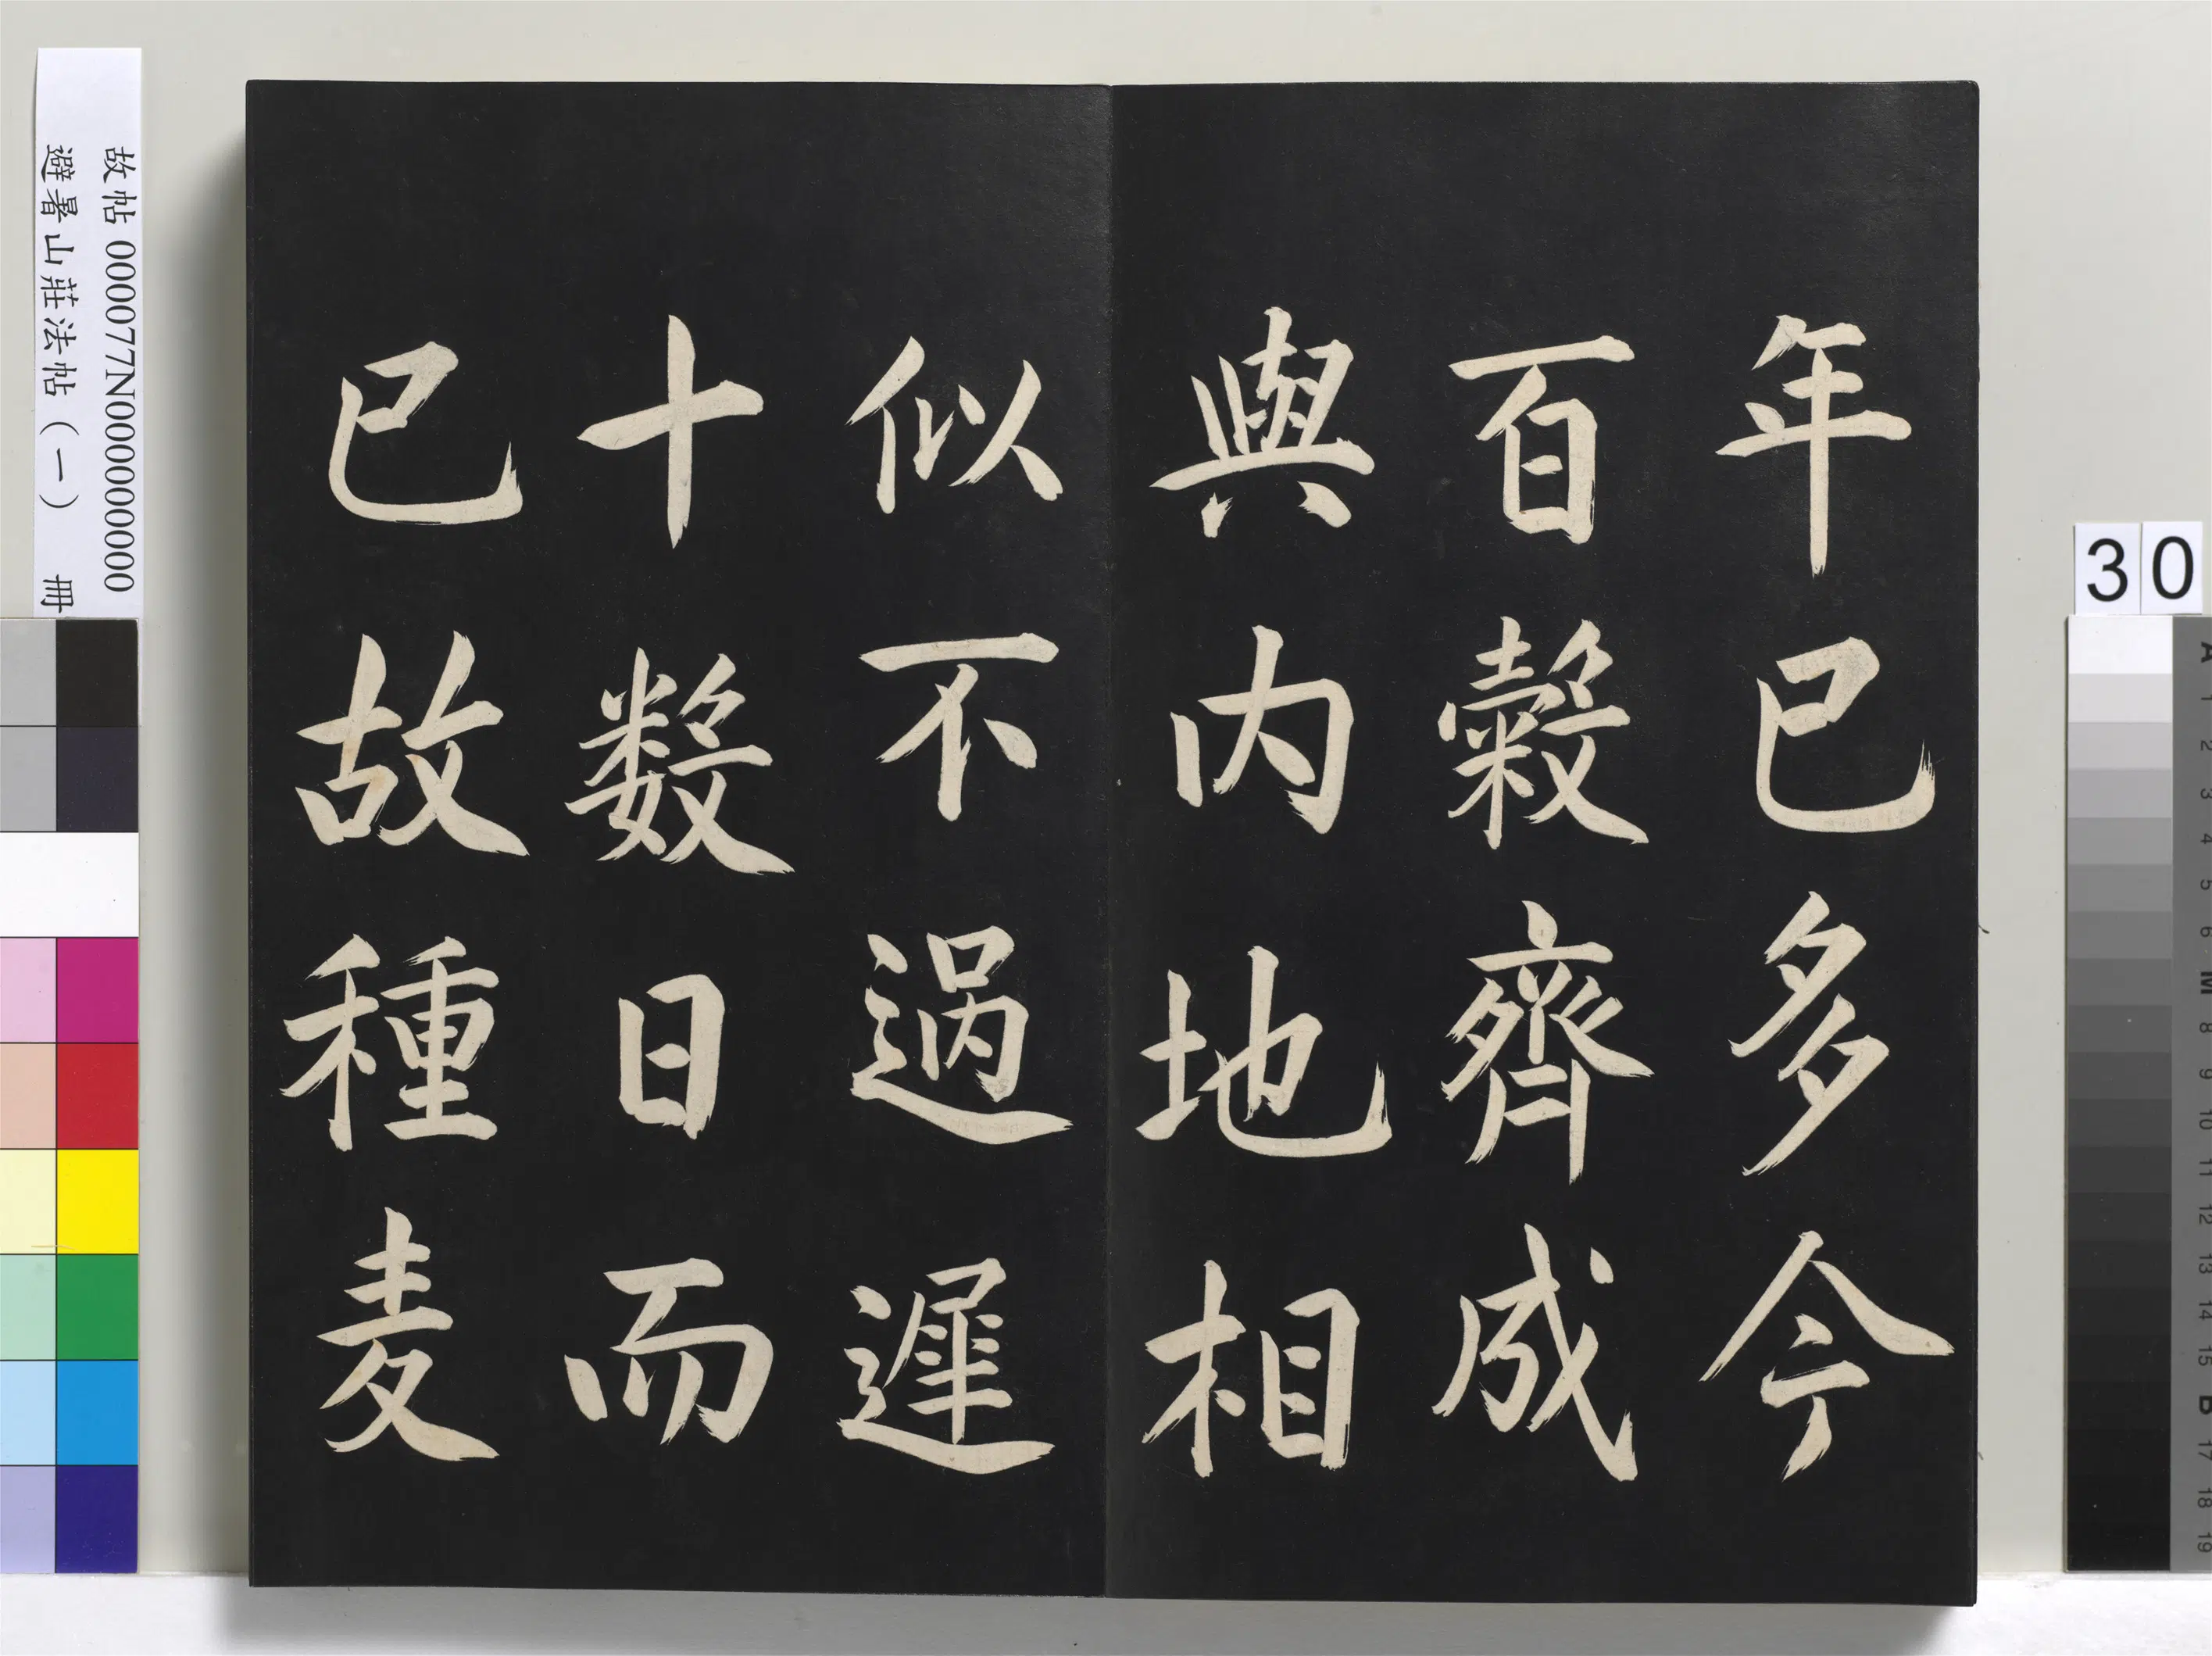 年已多今
百穀齊成
與内地相
似不過遲
十数日而
已故種麦
故帖 000077N000000000
避暑山莊法帖（一） 冊
30
A
1
2
3
4
5
6
M
8
9
10
11
12
13
14
15
B
17
18
19